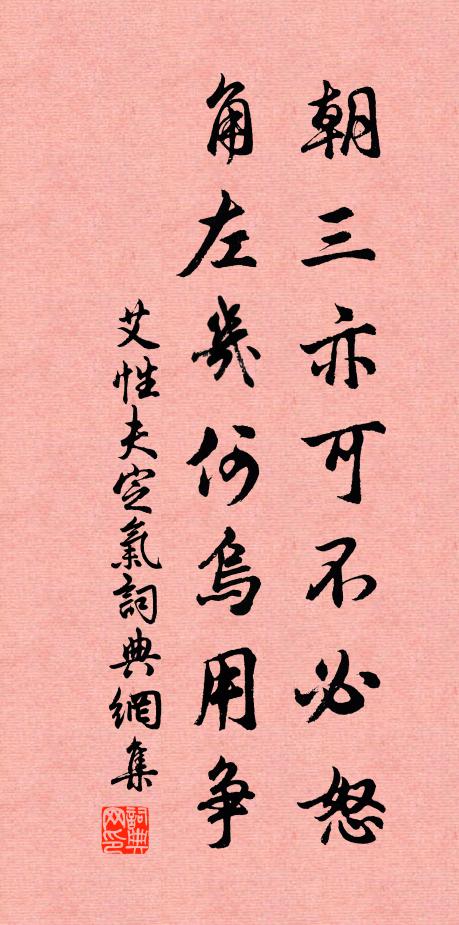 朝三亦可不必怒
角左幾何烏用争
艾性夫定氣詞典網集
詞典网印